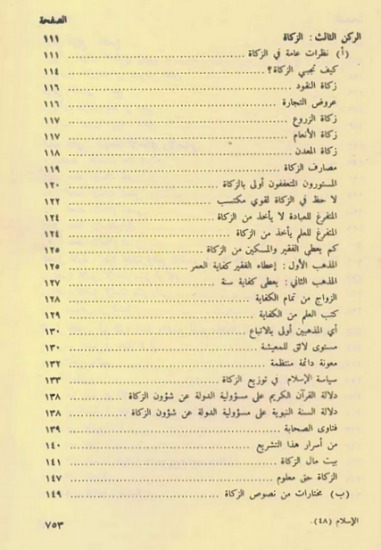 الصفحة
الركن الثالث : الزكاة ١١١
(أ) نظرات عامة في الزكاة ١١١
كيف تجبي الزكاة؟ ١١٤
زكاة النقود ١١٦
عروض التجارة ١١٦
زكاة الزروع ١١٧
زكاة الأنعام ١١٧
زكاة المعدن ١١٨
مصارف الزكاة ١١٩
المستورون المتعففون أولى بالزكاة ١٢٠
لا حظ في الزكاة لقوي مكتسب ١٢٢
المتفرغ للعبادة لا يأخذ من الزكاة ١٢٤
المتفرغ للعلم يأخذ من الزكاة ١٢٤
كم يعطى الفقير والمسكين من الزكاة ١٢٥
المذهب الأول : إعطاء الفقير كفاية العمر ١٢٥
المذهب الثاني : يعطى كفاية سنة ١٢٧
الزواج من تمام الكفاية ١٢٨
كتب العلم من الكفاية ١٢٩
أي المذهبين أولى بالاتباع ١٣٠
مستوى لائق للمعيشة ١٣٠
معونة دائمة منتظمة ١٣٢
سياسة الإسلام في توزيع الزكاة ١٣٣
دلالة القرآن الكريم على مسؤولية الدولة عن شؤون الزكاة ١٣٨
دلالة السنة النبوية على مسؤولية الدولة عن شؤون الزكاة ١٣٨
فتاوى الصحابة ١٣٩
من أسرار هذا التشريع ١٤٠
بيت مال الزكاة ١٤١
الزكاة حق معلوم ١٤٧
(ب) مختارات من نصوص الزكاة ١٤٩
الإسلام (٤٨). ٧٥٣